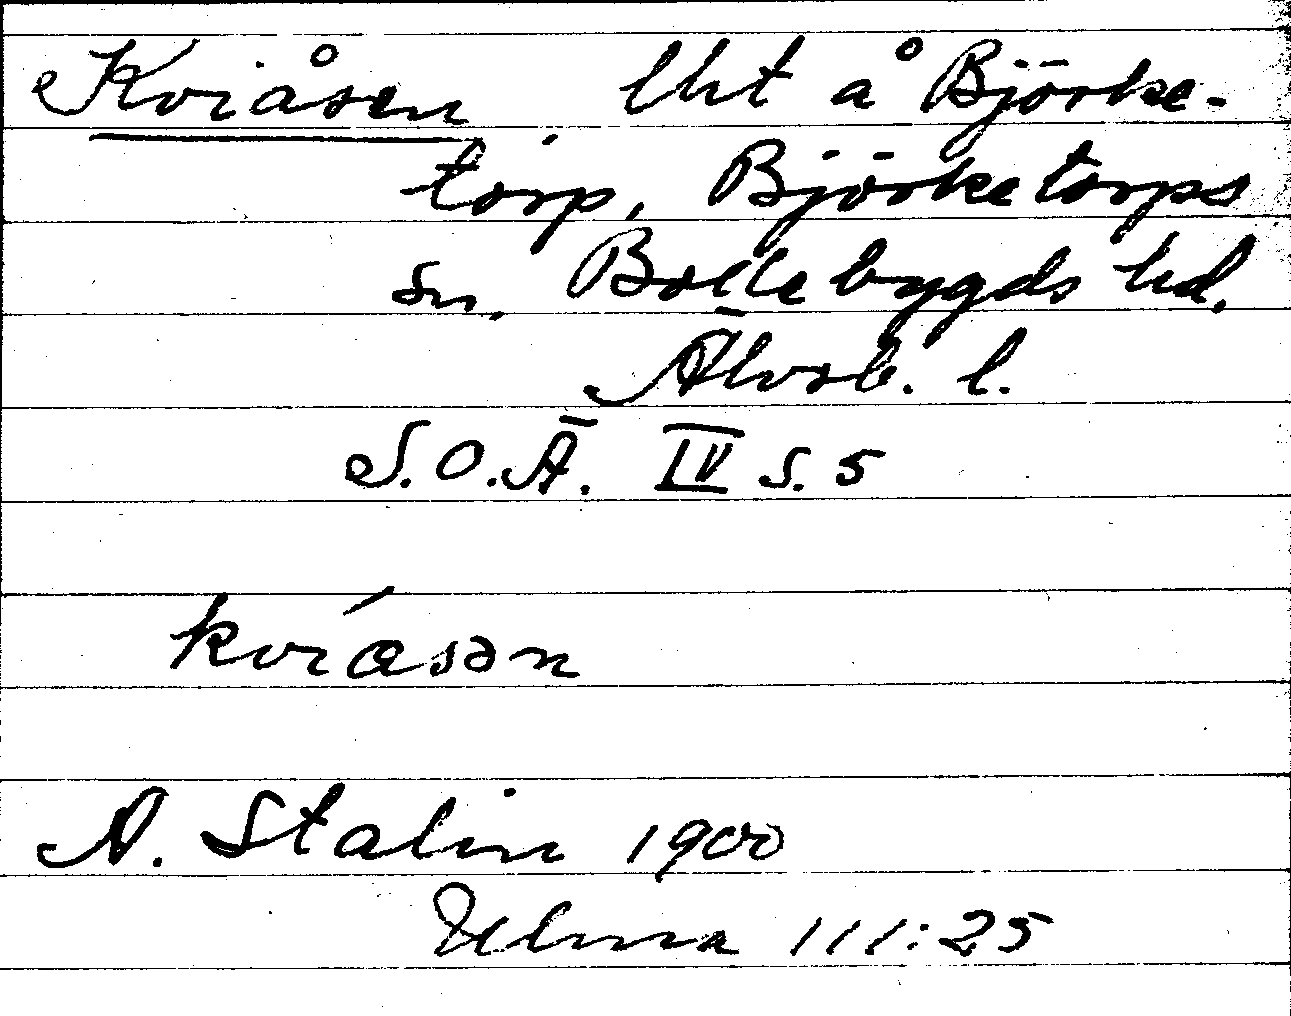 Kviåsen lht å Björke-
torp, Björketorps
sn, Bollebygds hd.
Älvsb. l.
S.O.Ä. IV s. 5
kvíɑsən
A. Stalin 1900
Ulma 111:25